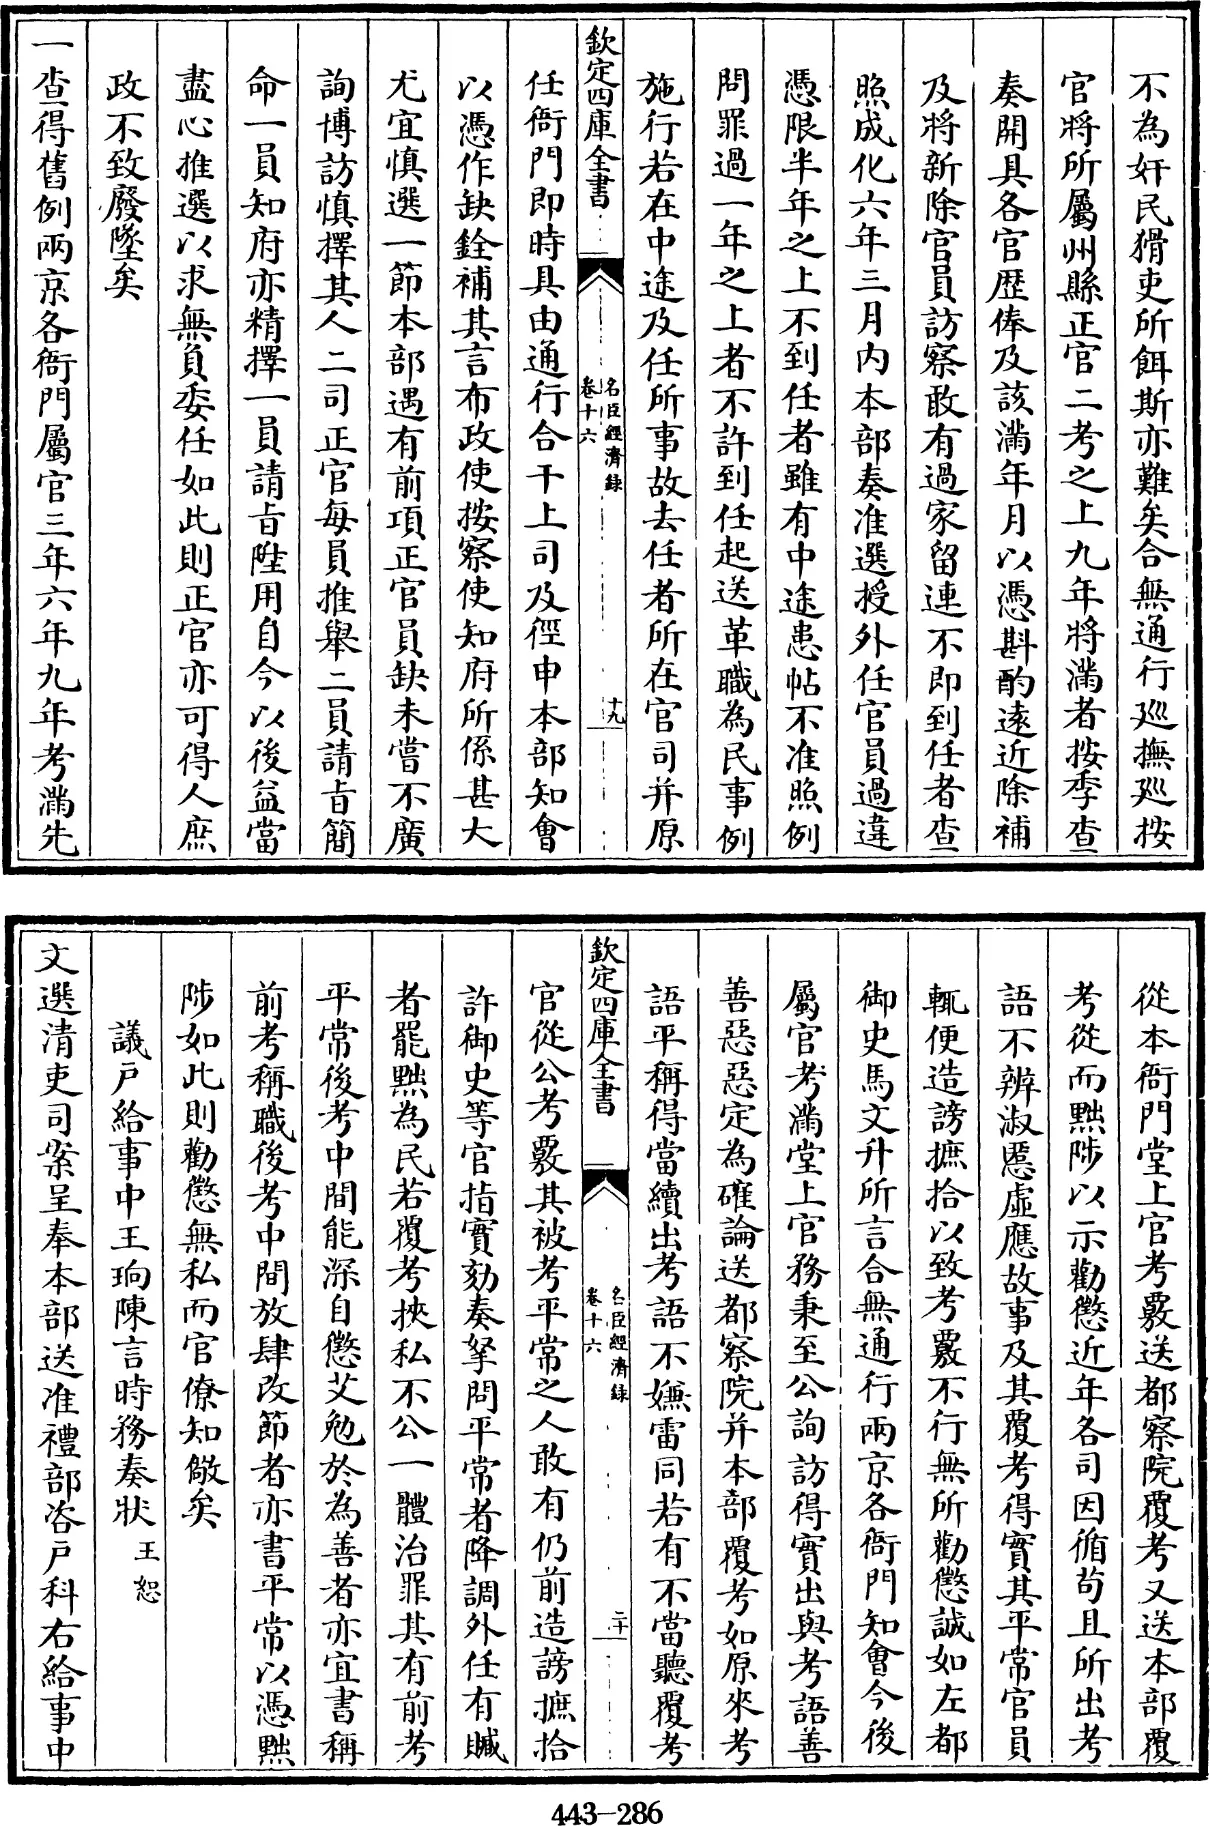 不為奸民猾吏所餌斯亦難矣合無通行廵撫廵按
官將所屬州縣正官二考之上九年將滿者按季查
奏開具各官歴俸及該滿年月以憑斟酌遠近除補
及將新除官員訪察敢有過家留連不即到任者查
照成化六年三月内本部奏准選授外任官員過違
憑限半年之上不到任者雖有中途患帖不准照例
問罪過一年之上者不許到任起送革職為民事例
施行若在中途及任所事故去任者所在官司并原
欽定四庫全書
名臣經濟錄
卷十六
十九
任衙門即時具由通行合干上司及徑申本部知會
以憑作缺銓補其言布政使按察使知府所係甚大
尤宜慎選一節本部遇有前項正官員缺未嘗不廣
詢博訪慎擇其人二司正官每員推舉二員請旨簡
命一員知府亦精擇一員請旨陞用自今以後益當
盡心推選以求無負委任如此則正官亦可得人庶
政不致廢墜矣
一查得舊例兩京各衙門屬官三年六年九年考滿先
從本衙門堂上官考覈送都察院覆考又送本部覆
考從而黜陟以示勸懲近年各司因循茍且所出考
語不辨淑慝虛應故事及其覆考得實其平常官員
輒便造謗摭拾以致考覈不行無所勸懲誠如左都
御史馬文升所言合無通行兩京各衙門知會今後
屬官考滿堂上官務秉至公詢訪得實出與考語善
善惡惡定為確論送都察院并本部覆考如原來考
語平稱得當續出考語不嫌雷同若有不當聽覆考
欽定四庫全書
名臣經濟錄
卷十六
二十
官從公考覈其被考平常之人敢有仍前造謗摭拾
許御史等官指實劾奏拏問平常者降調外任有贓
者罷黜為民若覆考挾私不公一體治罪其有前考
平常後考中間能深自懲艾勉於為善者亦宜書稱
前考稱職後考中間放肆改節者亦書平常以憑黜
陟如此則勸懲無私而官僚知儆矣
議戸給事中王珦陳言時務奏狀 王恕
文選清吏司案呈奉本部送准禮部咨戸科右給事中
443-286